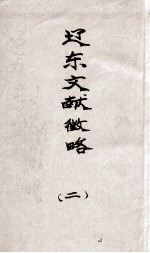 辽东文献徵略
（二）